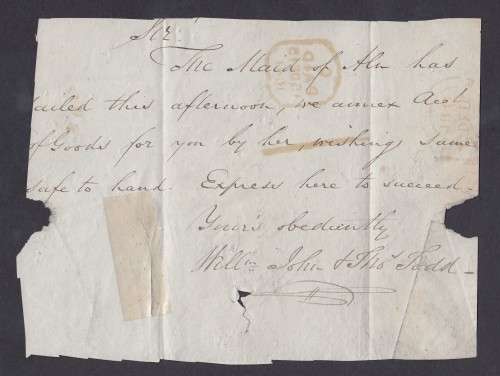 Sir
The Maid of Aln has
sailed this afternoon, we annex Acct
of Goods for you by her, wishing same
safe to hand. Express here to succeed.
Your's obediently
Willm John & Thos Todd